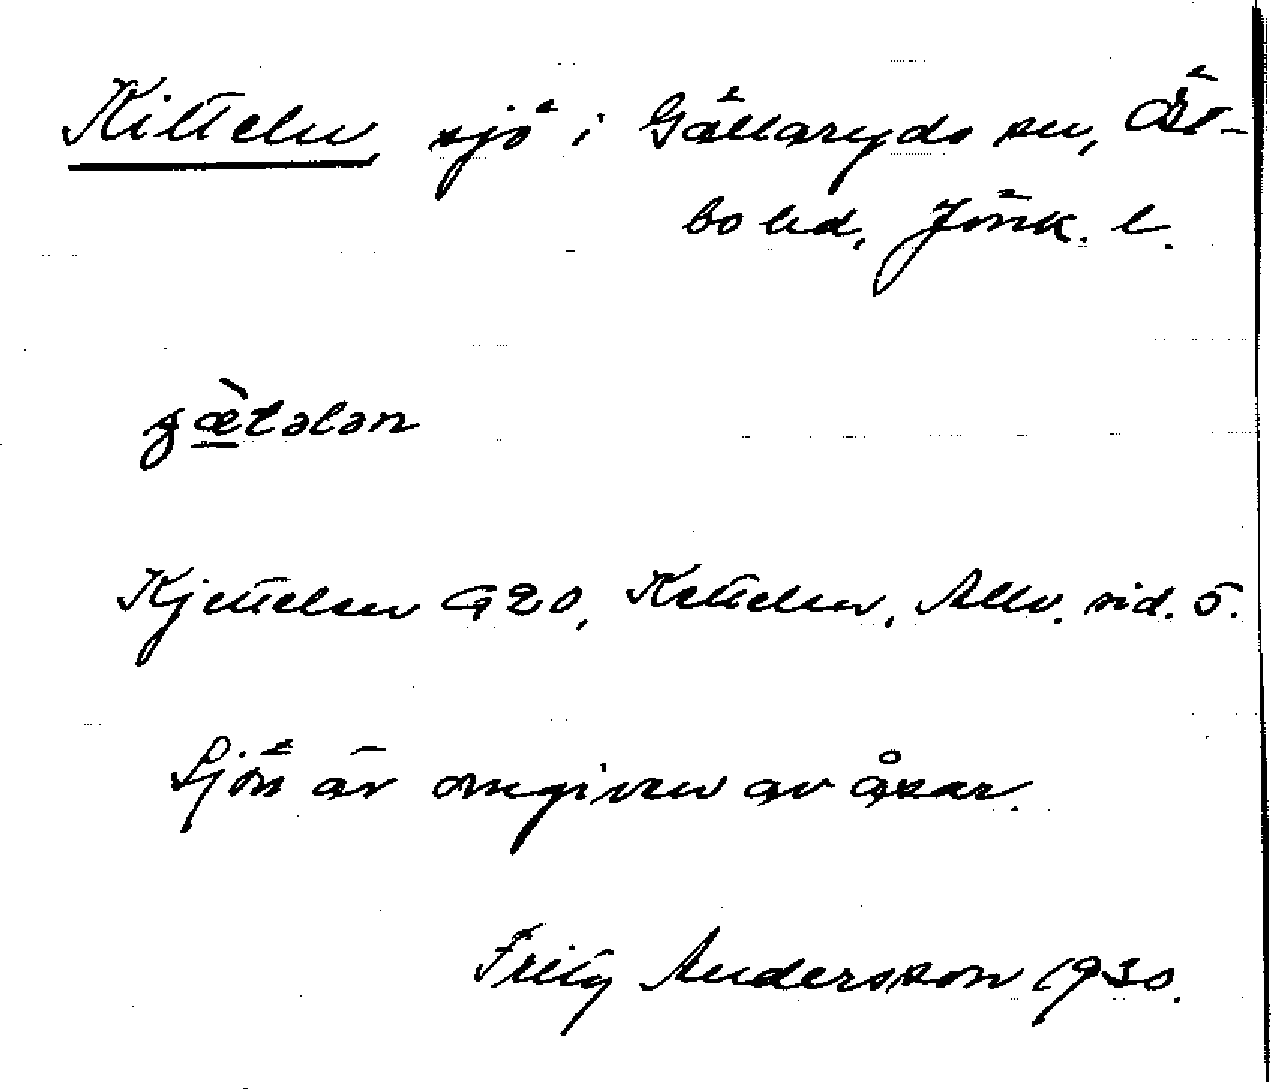 Kitteln sjö i Gällaryds sn, Öst-
bo hd, Jönk. l.
Kjetteln G20, Ketteln, Allv. sid. 5.
Sjön är omgiven av åkar.
Fritz Andersson 1930.